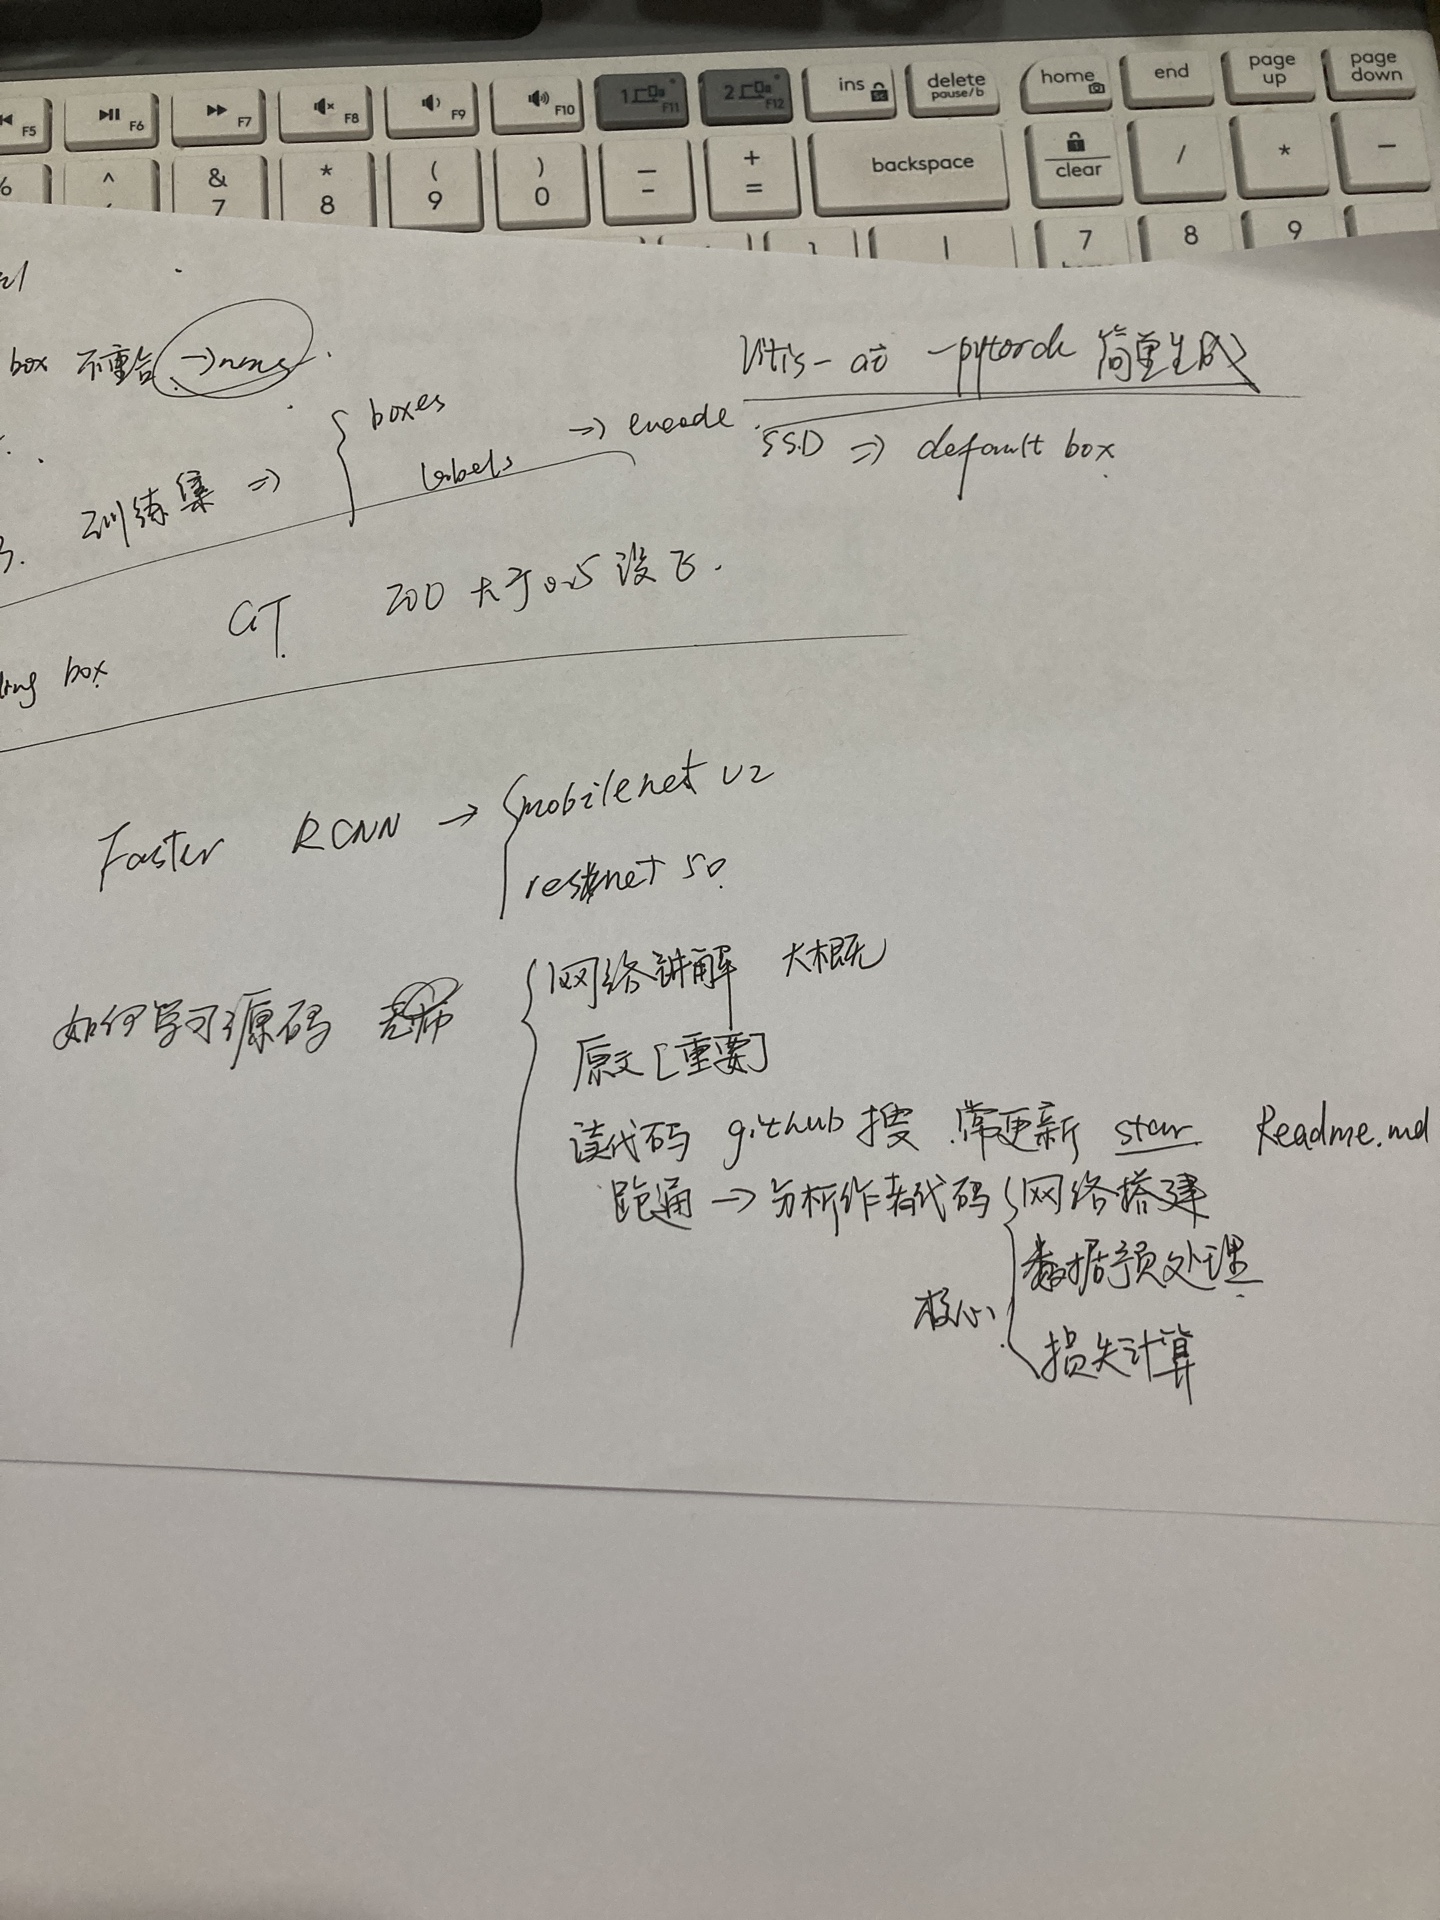 F5 F6 F7 F8 F9 F10 1 F11 2 F12 ins delete pause/b home end page up page down
% ^ & 7 * 8 ( 9 ) 0 — - + = backspace clear / * −
7 8 9
box 不重合 →nms
Vitis-ai -pytorch 简单生成
3. 训练集 ⇒ { boxes labels ⇒ encode
SSD ⇒ default box
GT 大于0.5 设
box
Faster RCNN → { mobilenet v2
resnet 50
如何学习源码 老师 { 网络讲解 大概
原文 [重要]
读代码 github 搜 常更新 star Readme.md
跑通 → 分析作者代码 { 网络搭建
数据预处理
核心
损失计算